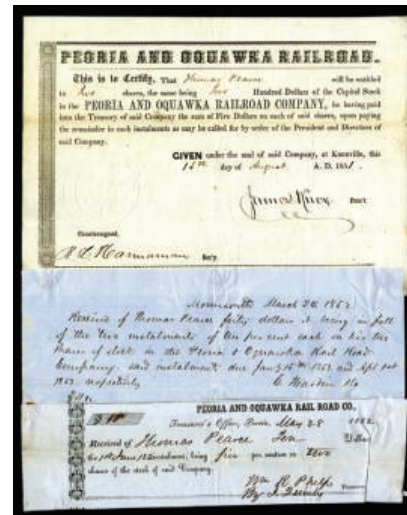 PEORIA AND OQUAWKA RAILROAD.
This is to Certify, That Thomas Pearce will be entitled
to two shares, the same being Two Hundred Dollars of the Capital Stock
in the PEORIA AND OQUAWKA RAILROAD COMPANY, he having paid
into the Treasury of said Company the sum of Five Dollars on each of said shares, upon paying
the remainder in such instalments as may be called for by order of the President and Directors of
said Company.
GIVEN under the seal of said Company, at Knoxville, this
day of August A. D. 1851.
James Knox Prest.
Countersigned.
Hannaman Sec'y.
Monmouth March 24, 1853
Received of Thomas Pearce forty dollars it being in full
of the two instalments of ten per cent each on his two
shares of stock in the Peoria & Oquawka Rail Road
Company, said instalments due Jany 15th 1853 and Sept 1st
1853 respectively
C. Harden
PEORIA AND OQUAWKA RAIL ROAD CO.
$ 10 Treasurer's Office, Peoria, May 28 1852
Received of Thomas Pearce Ten Dollars
for 1st June instalment, being five per centum on two
shares of the stock of said Company.
Wm R. Phelps Treasurer
By